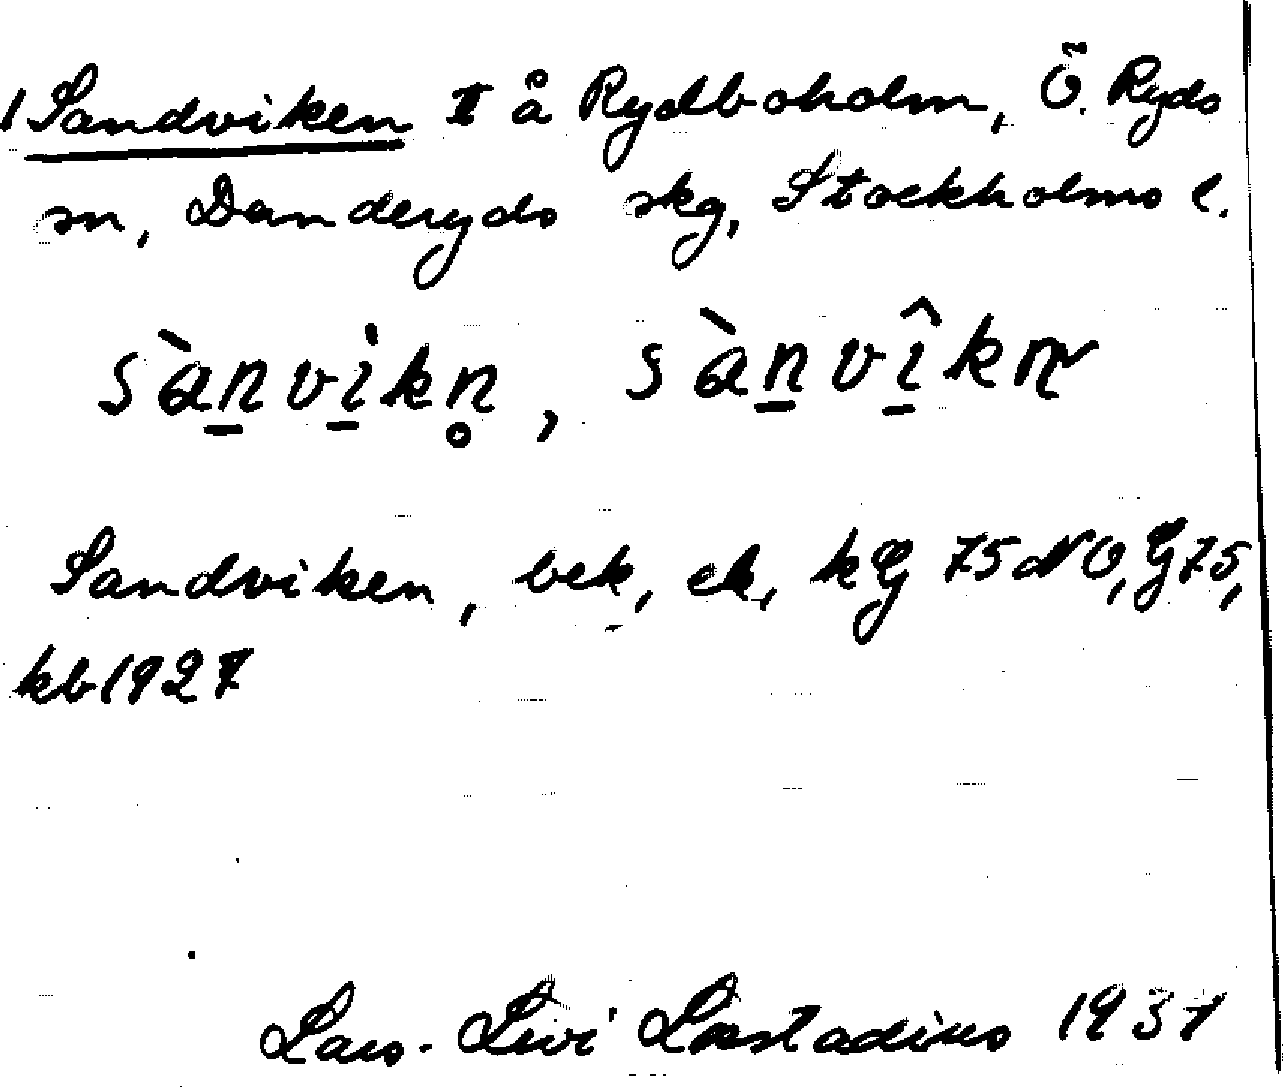 1 Sandviken I å Rydboholm, Ö. Ryds
sn, Danderyds skg, Stockholms l.
sànvìkn̥, sànvîkn
Sandviken, bek, ek, kg 75 NO, G 75,
kb 1927
Lars-Levi Læstadius 1937